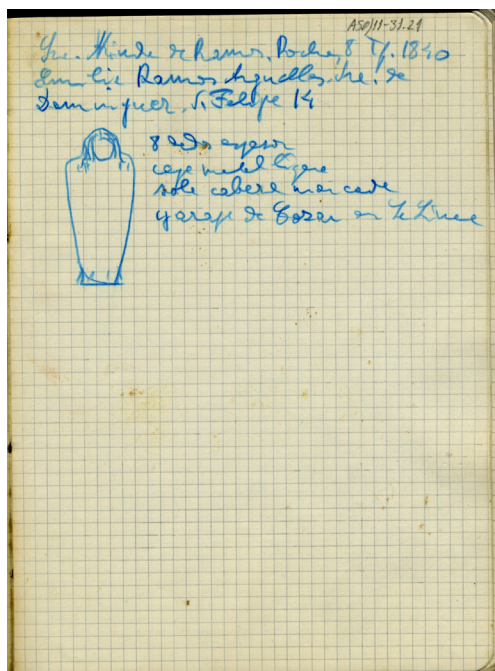 ASO/11-31.21
Sra. Viuda de Ramos. Roche, 8 Tf. 1840
Emilia Ramos Arguelles, Sra. de
Dominguez. S. Felipe 14
8 dedos espesor
caja metal ligera
solo cabeza marcada
garaje de Cozar en La Linea